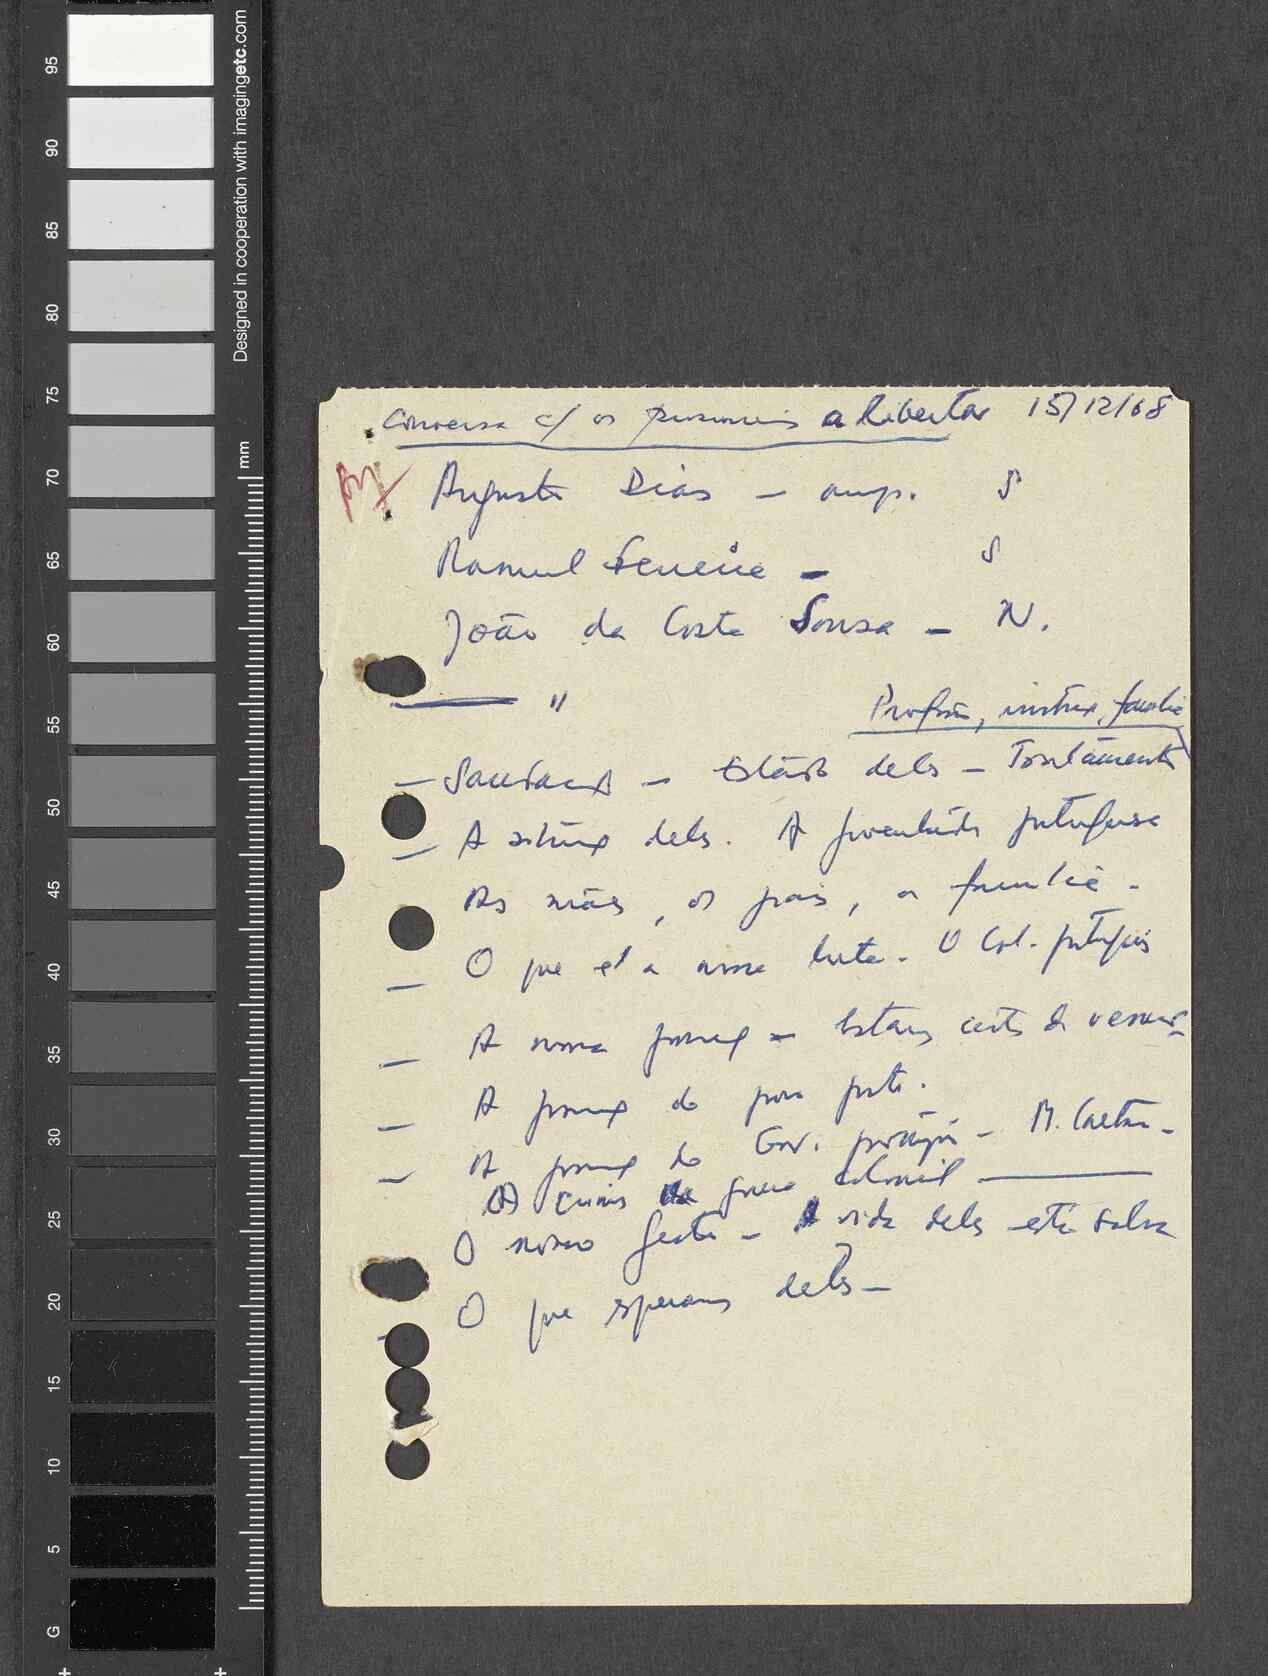 95
90
85
80
75
70
65
60
55
50
45
40
35
30
25
20
15
10
5
G
Designed in cooperation with imagingetc.com
mm
Conversa c/ os a libertar 15/12/68
Augusto Dias — S
Manuel — S
João da Costa Sousa — N.
"
— — Estado deles — Tratamento
— A deles. A juventude portuguesa
As mães, os pais, a família —
— O que é a nossa luta. O Col. português
— A nossa — Estamos certos de vencer —
— A do povo port.
— A do Gov. — M. Caetano —
Os crimes da guerra colonial —
O nosso gesto — A vida deles está salva
— O que esperamos deles —